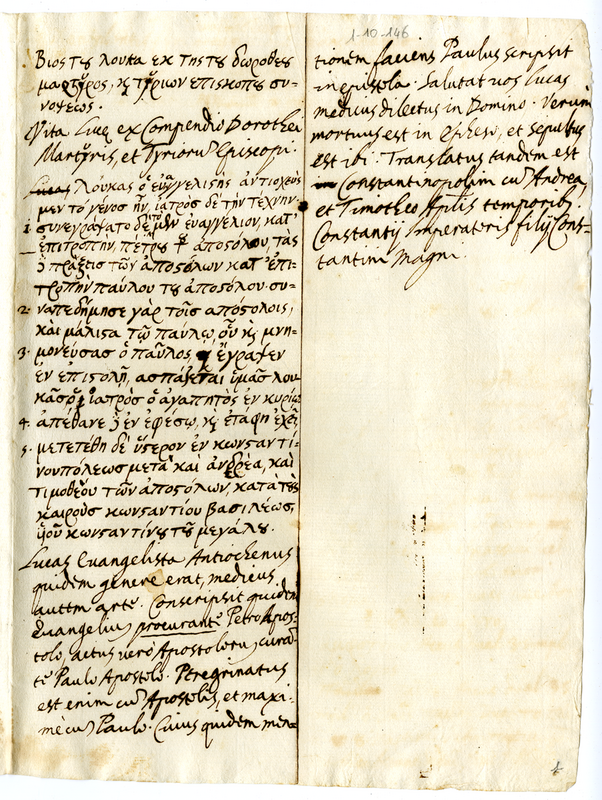 1-10-146
Βιος τȣ λουκα εκ της τȣ δωροθεȣ
μαρτυρος, κ̀ τυριων επισκοπȣ συ-
νοψεως.
Vita Lucę ex Compendio Dorothei
Martyris, et Tyrioru Episcopi.
Λούκας ὁ εὐαγγελιςής ἀντιοχεὺς
μεν τὸ γένος ἦν, ἰατρός δὲ τὴν τέχνην,
1. συνεγράψατο δὲ μὲν εὐαγγελιον, κατ'
ἐπιτροπὴν, πέτρȣ τȣ ἀποςόλου, τὰς
δ πράξεις τῶν ἀποςόλων κατ' ἐπι-
τροπὴν παύλου τȣ ἀποςόλου. συ-
2. ναπεδήμησε γὰρ τοῖς ἀποςόλοις,
καὶ μάλιςα τῶ παύλω, οὗ κ̀ μνη-
3. μονεύσας ὁ παῦλος, ἔγραψεν
ἐν ἐπιςολῆ, ασπάζεται ὑμᾶς λου-
κᾶς ὁ ἰατρὸς ὁ ἀγαπητὸς ἐν κυρίω
4. απέθανε δ ἐν ἐφέσω, κ̀ ἐτάφη ἐκεῖ,
5. μετετέθη δὲ ὕςερον ἐν κωνςαντι-
νουπόλεως μετὰ καὶ ἀνδρέα, καὶ
τιμοθέου τῶν ἀποςόλων, κατὰ τȣς
καιροὺς κωνςαντίου βασιλέως,
υἱοῦ κωνςαντίνȣ τȣ μεγάλȣ.
Lucas Evangelista Antiochenus
quidem genere erat, medicus
autem arte. Conscripsit quidem
Evangeliu procurante Petro Apos-
tolo, actus verò Apostoloru, curā-
te Paulo Apostolo. Peregrinatus
est enim cu Apostolis, et maxi-
mè cu Paulo. Cuius quidem men-
tionem faciens Paulus scripsit
in epistola. Salutat vos Lucas
medicus dilectus in Domino. Verum
mortuus est in Epheso, et sepultus
est ibi. Translatus tandem est
Constantinopolim cu Andrea,
et Timotheo Aplis temporib.
Constantij Imperatoris filij Cons-
tantini Magni.
1